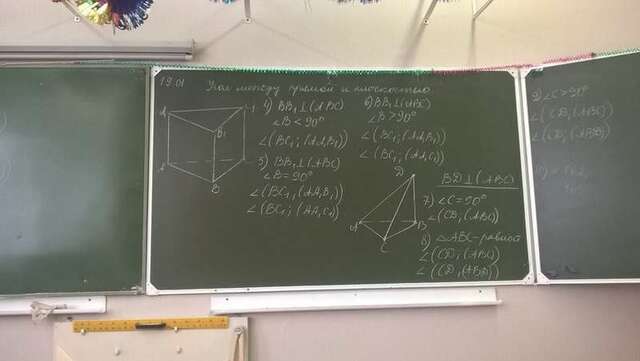 19.01 Угол между прямой и плоскостью
A₁
B₁
A
B
4) BB₁ ⊥ (ABC)
∠B < 90°
∠(BC₁; (AA₁B₁))
5) BB₁ ⊥ (ABC)
∠B = 90°
∠(BC₁, (AA₁B₁))
∠(BC₁; (AA₁C₁))
6) BB₁ ⊥ (ABC)
∠B > 90°
∠(BC₁; (AA₁B₁))
∠(BC₁, (AA₁C₁))
D
A
B
C
BD ⊥ (ABC)
7) ∠C = 90°
∠(CD, (ABC))
8) △ABC - равност
∠(CD; (ABC))
∠(CD, (ABD))
9) ∠C > 90°
∠(CD, (ABC))
∠(CD; (ABD))